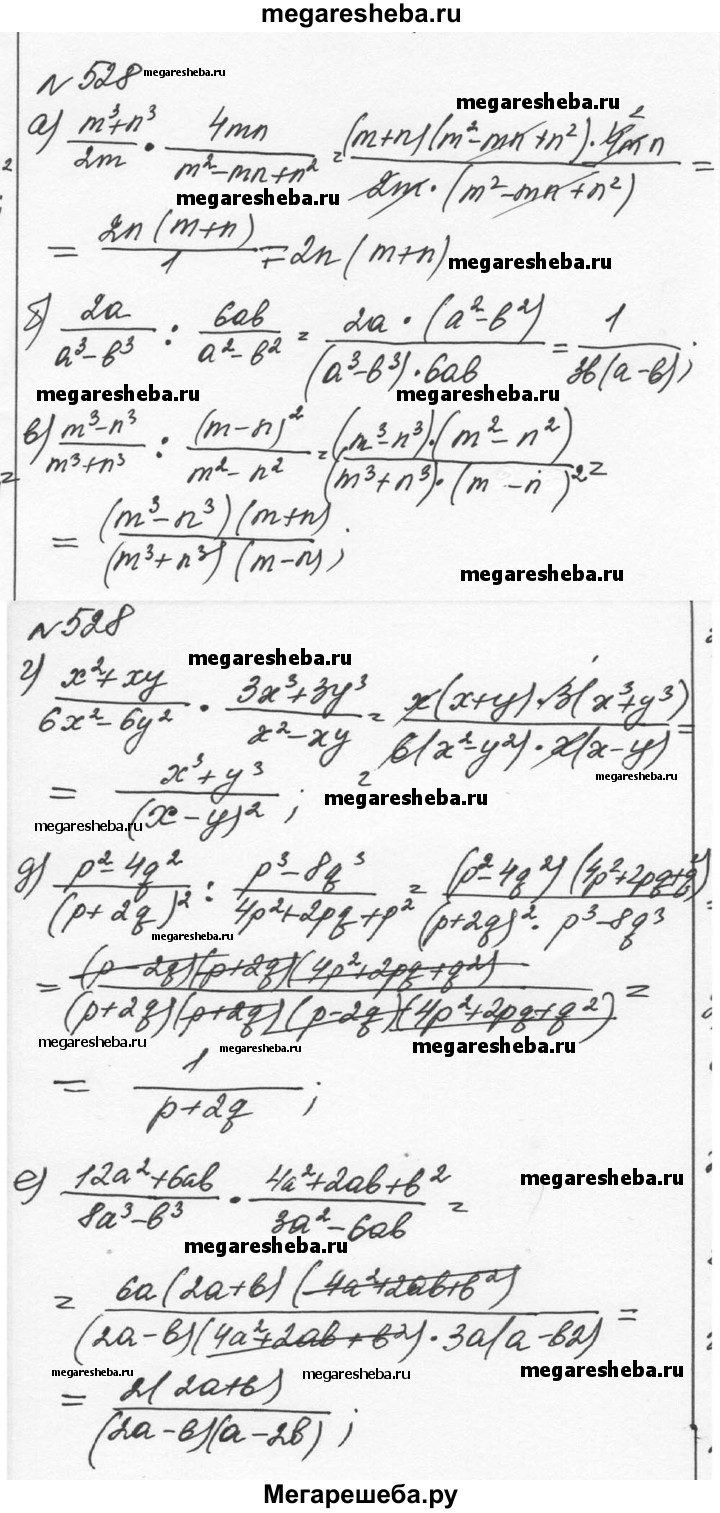 megaresheba.ru
№528 megaresheba.ru
megaresheba.ru
а) (m³+n³)/(2m) · (4mn)/(m²-mn+n²) = ((m+n)(m²-mn+n²)·4mn)/(2m·(m²-mn+n²)) =
2
megaresheba.ru
= (2n(m+n))/1 = 2n(m+n) megaresheba.ru
б) (2a)/(a³-b³) : (6ab)/(a²-b²) = (2a·(a²-b²))/((a³-b³)·6ab) = 1/(3b(a-b));
megaresheba.ru megaresheba.ru
в) (m³-n³)/(m³+n³) : (m-n)²/(m²-n²) = ((m³-n³)·(m²-n²))/((m³+n³)·(m-n)²) =
= ((m³-n³)(m+n))/((m³+n³)(m-n));
megaresheba.ru
№528
megaresheba.ru
г) (x²+xy)/(6x²-6y²) · (3x³+3y³)/(x²-xy) = (x(x+y)·3(x³+y³))/(6(x²-y²)·x(x-y)) =
megaresheba.ru
= (x³+y³)/(x-y)²;
megaresheba.ru megaresheba.ru
д) (p²-4q²)/(p+2q)² : (p³-8q³)/(4p²+2pq+p²) = ((p²-4q²)(4p²+2pq+q²))/((p+2q)²·p³-8q³) =
megaresheba.ru
= ((p-2q)(p+2q)(4p²+2pq+q²))/((p+2q)(p+2q)(p-2q)(4p²+2pq+q²)) =
megaresheba.ru megaresheba.ru megaresheba.ru
= 1/(p+2q);
е) (12a²+6ab)/(8a³-b³) · (4a²+2ab+b²)/(3a²-6ab) =
megaresheba.ru
megaresheba.ru
= (6a(2a+b)(4a²+2ab+b²))/((2a-b)(4a²+2ab+b²)·3a(a-b2)) =
megaresheba.ru megaresheba.ru megaresheba.ru
= (2(2a+b))/((2a-b)(a-2b));
Мегарешеба.ру